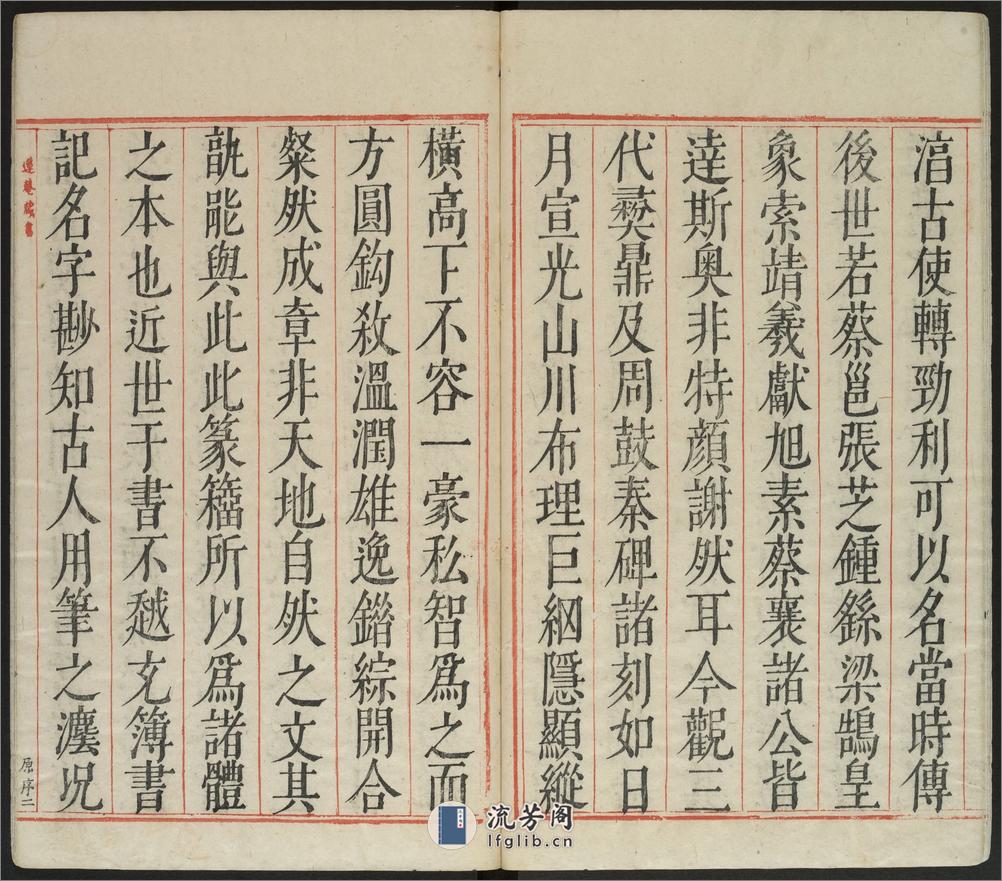 湻古使轉勁利可以名當時傳
後世若蔡邕張芝鍾繇梁鵠皇
象索靖羲獻旭素蔡襄諸公皆
達斯奧非特顔謝然耳今觀三
代彝鼎及周鼓秦碑諸刻如日
月宣光山川布理巨網隱顯縱
橫高下不容一豪私智爲之而
方圓鈎殺溫潤雄逸錯綜開合
粲然成章非天地自然之文其
孰能與此此篆籀所以爲諸體
之本也近世于書不越充簿書
記名字尠知古人用筆之灋況
原序二
流芳阁
lfglib.cn